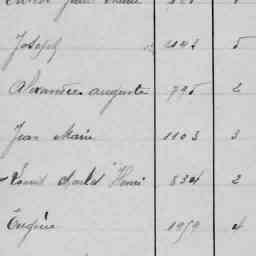 Joseph 2142 5
Alexandre auguste 795 2
Jean Marie 1103 3
Louis Charles Henri 834 2
Eugène 1959 4